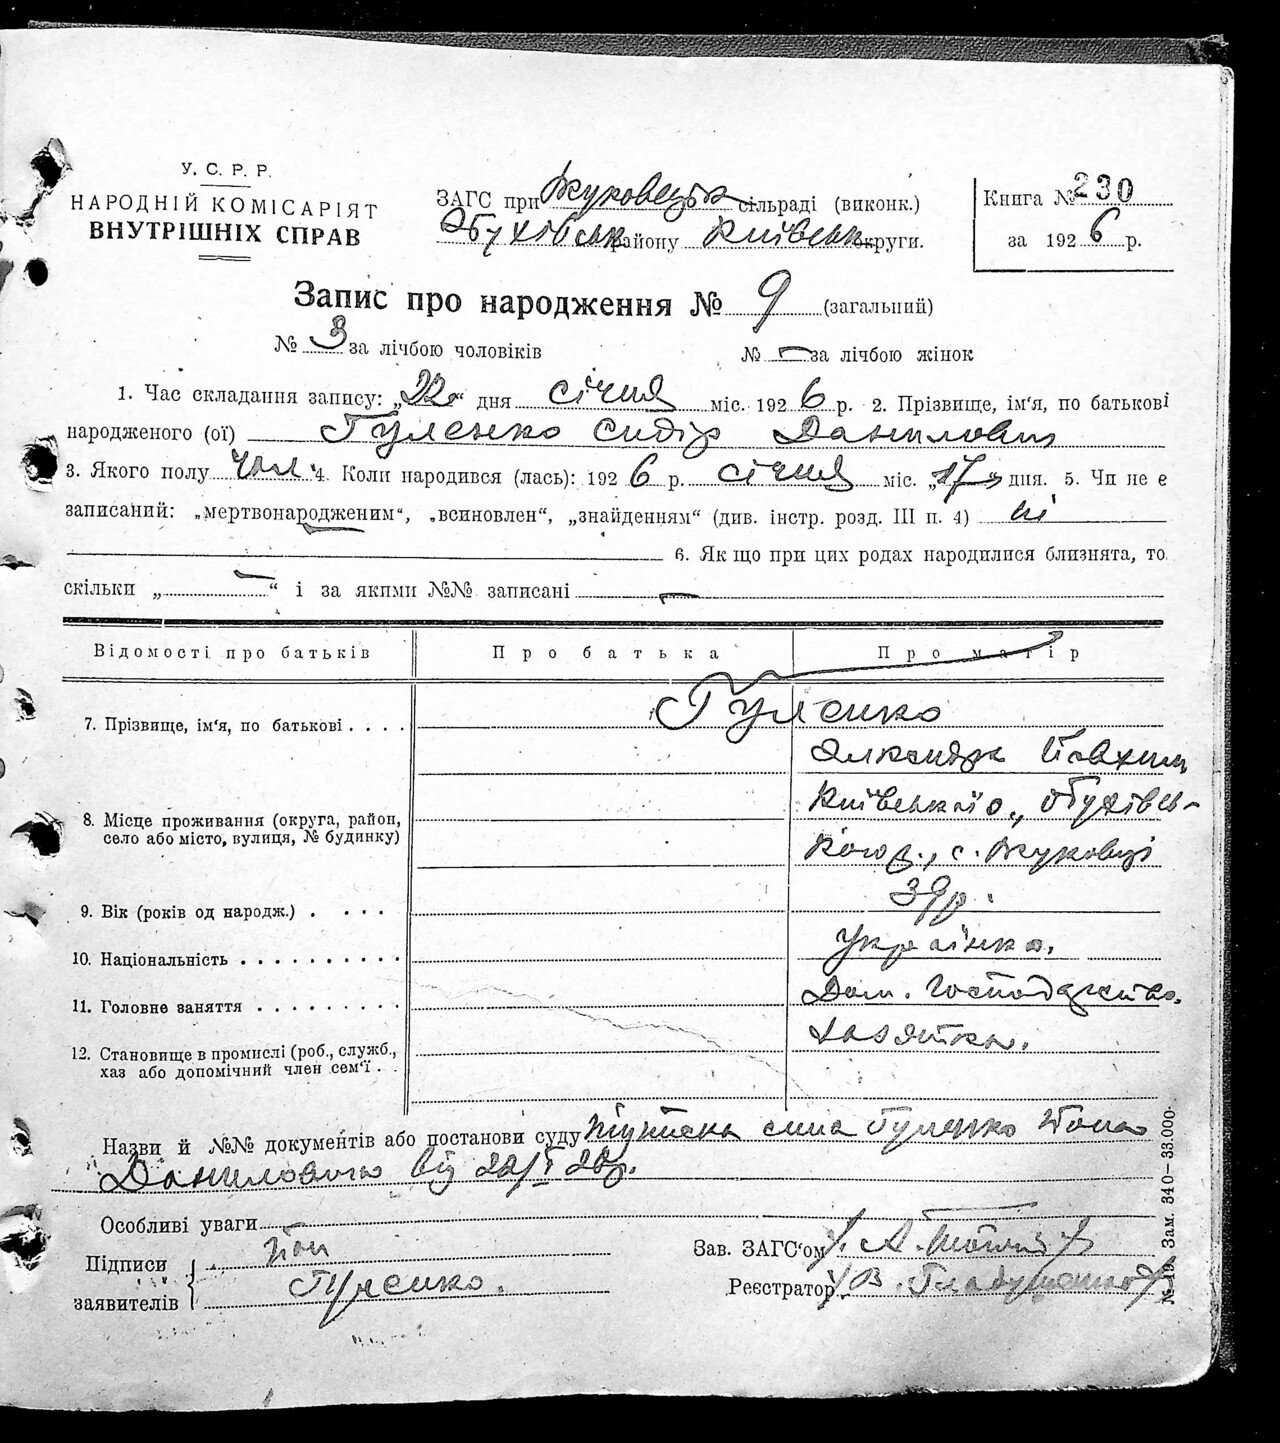 У. С. Р. Р.
НАРОДНІЙ КОМІСАРІЯТ
ВНУТРІШНІХ СПРАВ
ЗАГС при Жуковецьк сільраді (виконк.)
Обухівськ району Київськ округи.
Книга № 230
за 1926 р.
Запис про народження № 9 (загальний)
№ 3 за лічбою чоловіків № — за лічбою жінок
1. Час складання запису: „22“ дня січня міс. 1926 р. 2. Прізвище, ім‘я, по батькові
народженого (ої) Гуленко Сидір Данилович
3. Якого полу чол 4. Коли народився (лась): 1926 р. січня міс. „17“ дня. 5. Чи не е
записаний: „мертвонародженим“, „всиновлен“, „знайденням“ (див. інстр. розд. III п. 4) ні
6. Як що при цих родах народилися близнята, то
скільки „ — “ і за якими №№ записані —
Відомості про батьків Про батька Про матір
7. Прізвище, ім‘я, по батькові . . . . Гуленко
8. Місце проживання (округа, район,
село або місто, вулиця, № будинку)
Київської о., Обухівсь-
кого р., с. Жуковці
9. Вік (років од народж.) . . . . 39 р.
10. Національність . . . . . . . . . . Українка.
11. Головне заняття . . . . . . . Дом. Господарство.
12. Становище в промислі (роб., служб.,
хаз або допомічний член сем‘ї . .
Назви й №№ документів або постанови суду сина Гуленко
Даниловича від 22/I 26р.
Особливі уваги
Підписи
заявителів Гуленко.
Зав. ЗАГС‘ом
Реєстратор В.
№ 10. Зам. 340—33.000